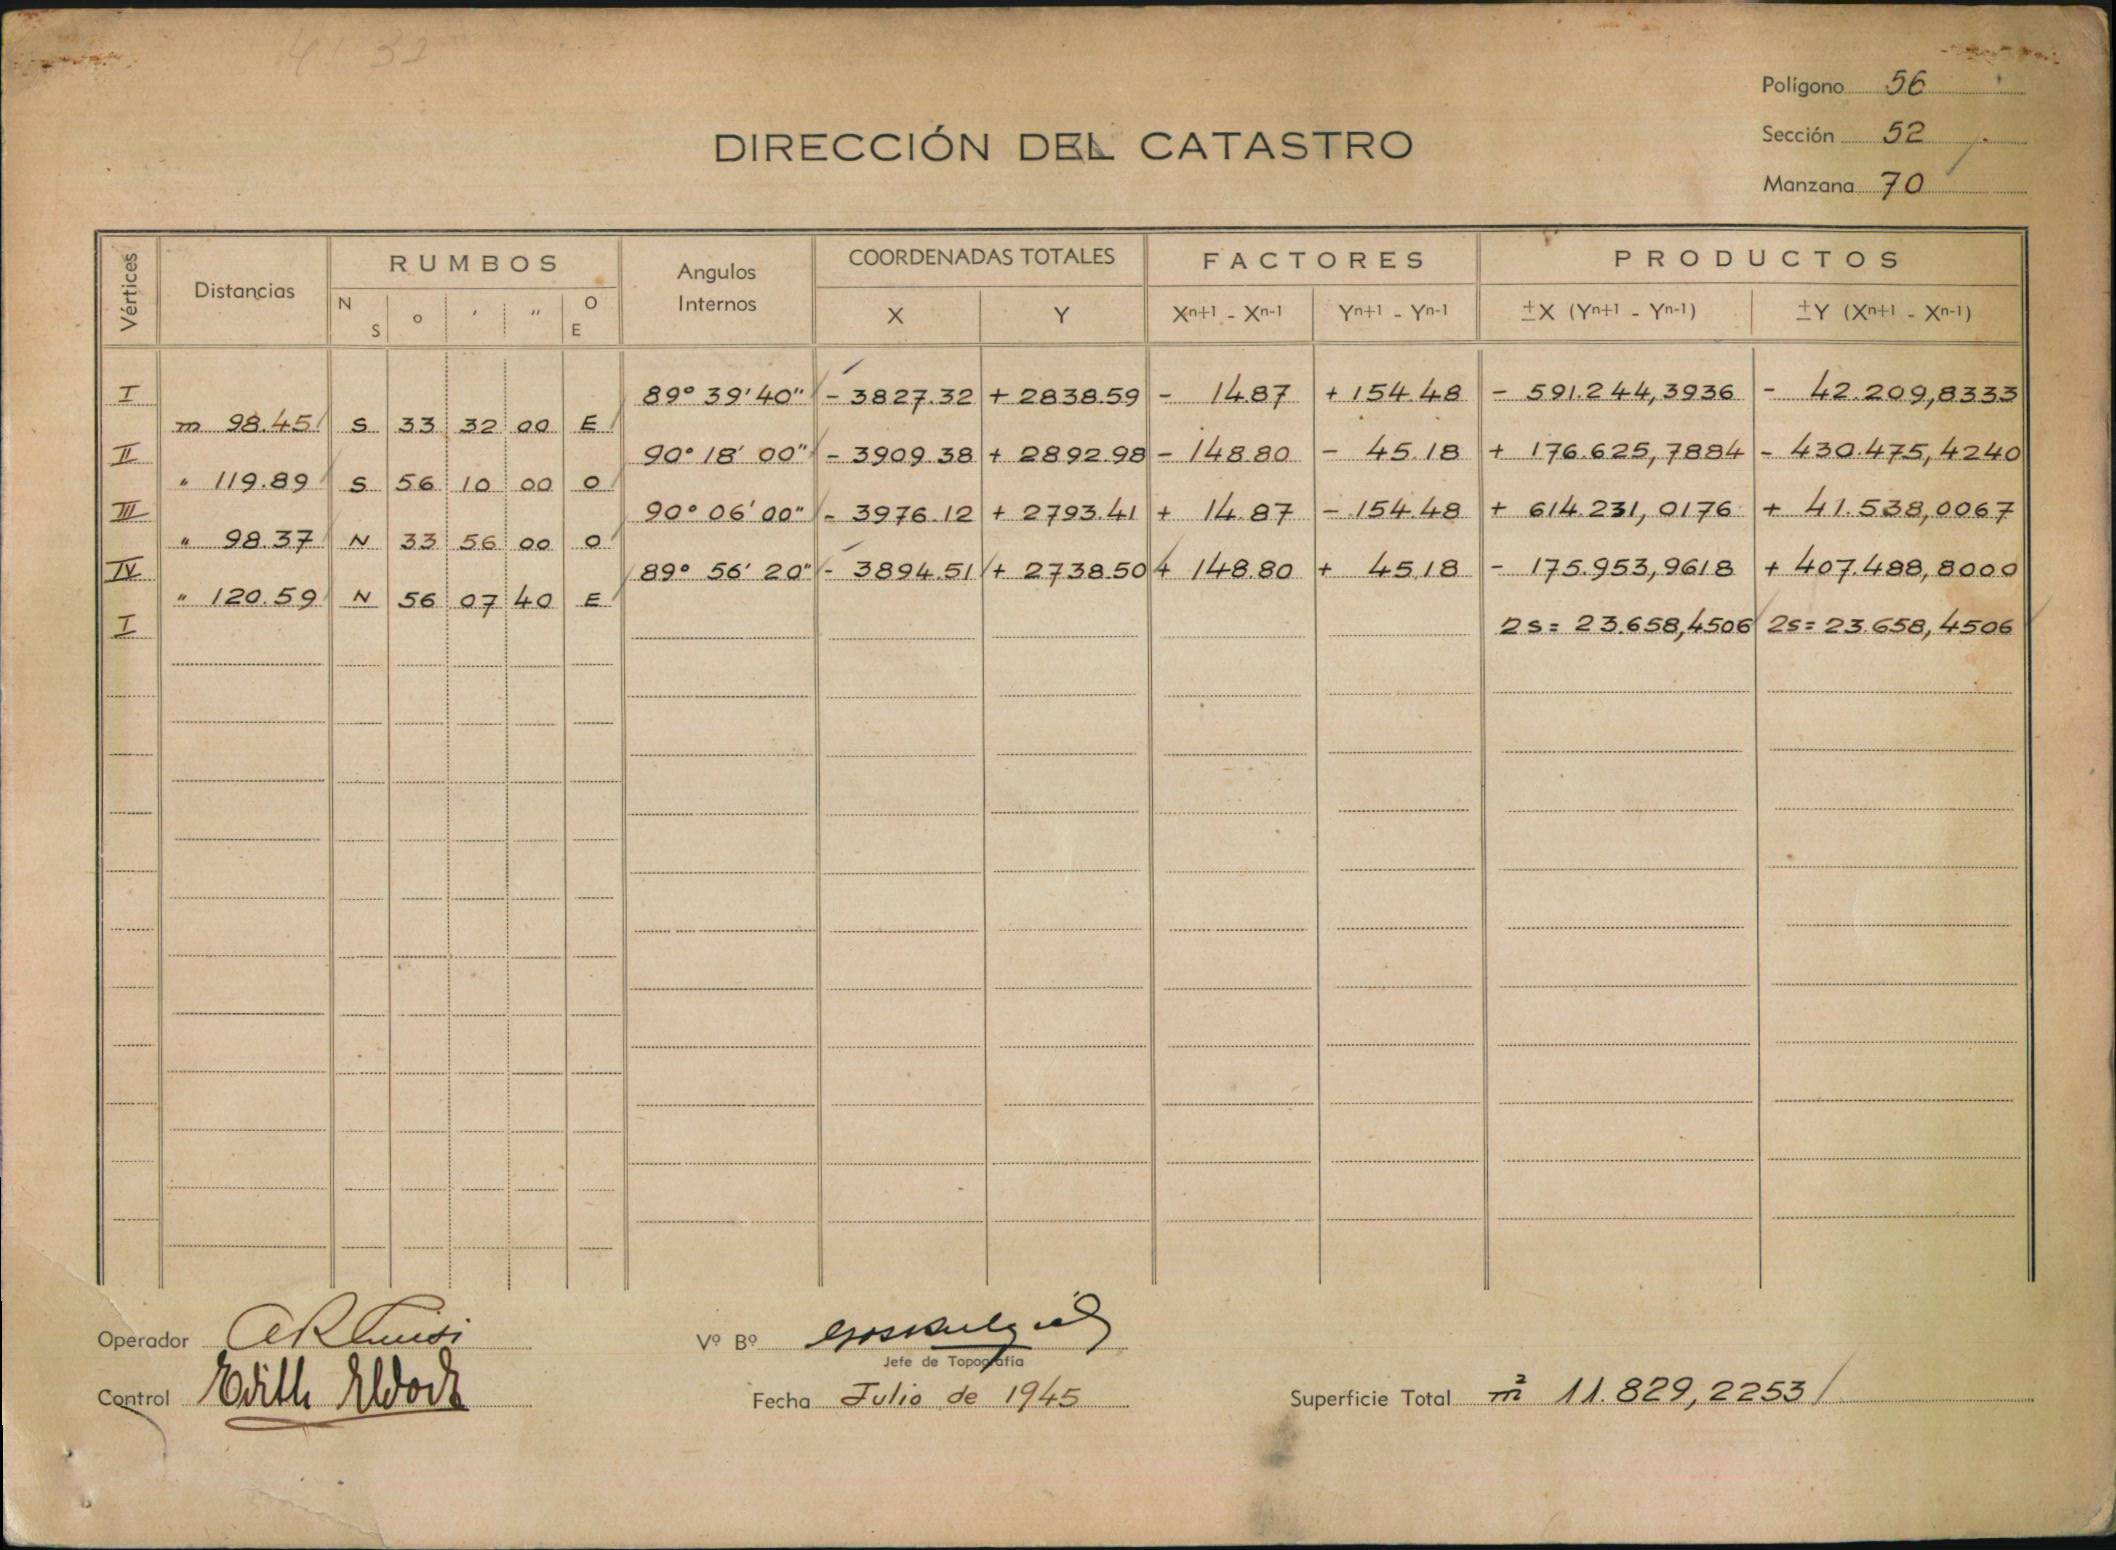 41 32
Polígono 56
Sección 52
Manzana 70
DIRECCIÓN DEL CATASTRO
Vértices Distancias RUMBOS Angulos Internos COORDENADAS TOTALES FACTORES PRODUCTOS
N S o ' " O E X Y Xn+1 - Xn-1 Yn+1 - Yn-1 ±X (Yn+1 - Yn-1) ±Y (Xn+1 - Xn-1)
I 89° 39' 40" - 3827.32 + 2838.59 - 14.87 + 154.48 - 591.244,3936 - 42.209,8333
m 98.45 S 33 32 00 E
II 90° 18' 00" - 3909.38 + 2892.98 - 148.80 - 45.18 + 176.625,7884 - 430.475,4240
" 119.89 S 56 10 00 O
III 90° 06' 00" - 3976.12 + 2793.41 + 14.87 - 154.48 + 614.231,0176 + 41.538,0067
" 98.37 N 33 56 00 O
IV 89° 56' 20" - 3894.51 + 2738.50 + 148.80 + 45.18 - 175.953,9618 + 407.488,8000
" 120.59 N 56 07 40 E
I 2s = 23.658,4506 2s = 23.658,4506
Operador
Vº Bº
Jefe de Topografía
Control Edith
Fecha Julio de 1945
Superficie Total m² 11.829,2253